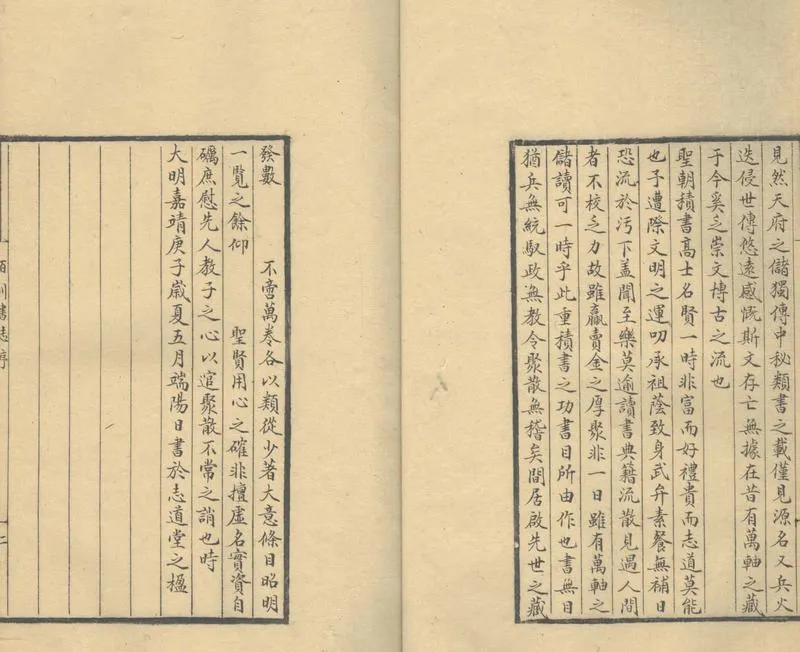 見然天府之儲獨傳中秘類書之載僅見源名又兵火
迭侵世傳悠遠感慨斯文存亡無據在昔有萬軸之藏
于今奚乏崇文博古之流也
聖朝積書高士名賢一時非富而好禮貴而志道莫能
也予遭際文明之運叨承祖蔭致身武弁素餐無補日
恐流於汚下盖聞至樂莫逾讀書典籍流散見遏人間
者不校乏力故雖贏賣金之厚聚非一日雖有萬軸之
儲讀可一時乎此重積書之功書目所由作也書無目
猶兵無統馭政無教令聚散無稽矣間居啟先世之藏
發數 不啻萬卷各以類從少著大意條目昭明
一覽之餘仰 聖賢用心之確非擅虛名實資自
礪庶慰先人教子之心以逭聚散不常之誚也時
大明嘉靖庚子歲夏五月端陽日書於志道堂之楹
百川書志序
二